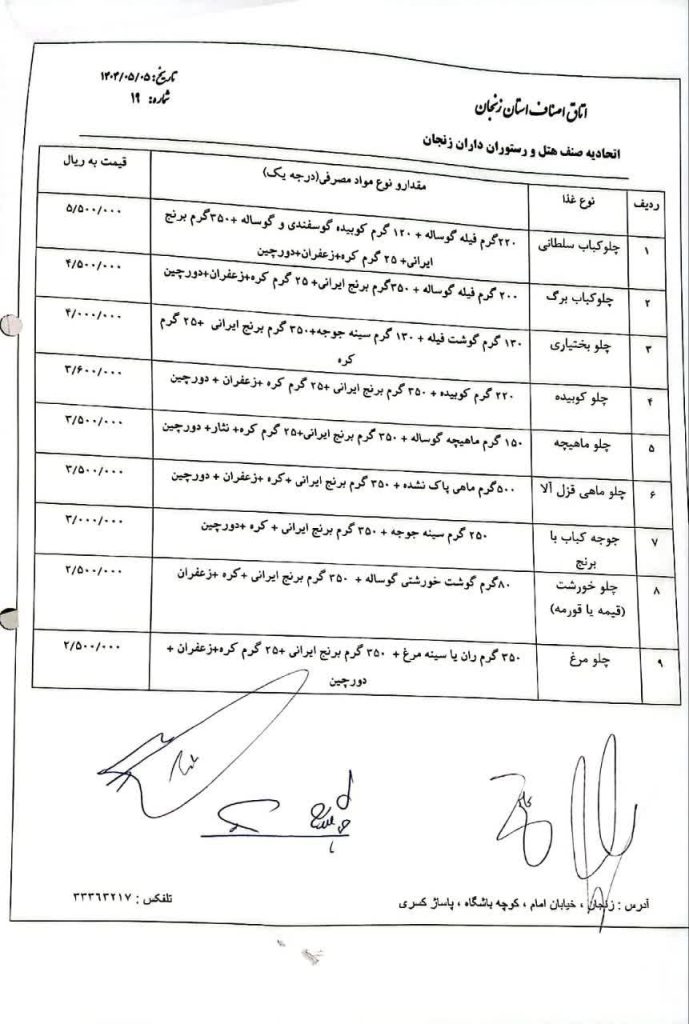 تاریخ: ۱۴۰۴/۰۵/۰۵
شماره: ۱۹
اتاق اصناف استان زنجان
اتحادیه صنف هتل و رستوران داران زنجان
ردیف نوع غذا مقدارو نوع مواد مصرفی(درجه یک) قیمت به ریال
۱ چلوکباب سلطانی ۲۲۰گرم فیله گوساله + ۱۲۰ گرم کوبیده گوسفندی و گوساله +۳۵۰گرم برنج ۵/۵۰۰/۰۰۰
ایرانی+ ۲۵ گرم کره+زعفران+دورچین
۲ چلوکباب برگ ۲۰۰ گرم فیله گوساله + ۳۵۰گرم برنج ایرانی+ ۲۵ گرم کره+زعفران+دورچین ۴/۵۰۰/۰۰۰
۳ چلو بختیاری ۱۳۰ گرم گوشت فیله + ۱۳۰ گرم سینه جوجه+۳۵۰ گرم برنج ایرانی +۲۵ گرم ۴/۰۰۰/۰۰۰
کره
۴ چلو کوبیده ۲۲۰ گرم کوبیده + ۳۵۰ گرم برنج ایرانی +۲۵ گرم کره +زعفران + دورچین ۳/۶۰۰/۰۰۰
۵ چلو ماهیچه ۱۵۰ گرم ماهیچه گوساله + ۳۵۰ گرم برنج ایرانی+۲۵ گرم کره+ نثار+ دورچین ۳/۵۰۰/۰۰۰
۶ چلو ماهی قزل آلا ۵۰۰گرم ماهی پاک نشده + ۳۵۰ گرم برنج ایرانی +کره +زعفران + دورچین ۳/۵۰۰/۰۰۰
۷ جوجه کباب با ۲۵۰ گرم سینه جوجه + ۳۵۰ گرم برنج ایرانی + کره +دورچین ۳/۰۰۰/۰۰۰
برنج
۸ چلو خورشت ۸۰گرم گوشت خورشتی گوساله + ۳۵۰ گرم برنج ایرانی +کره +زعفران ۲/۵۰۰/۰۰۰
(قیمه یا قورمه)
۹ چلو مرغ ۳۵۰ گرم ران یا سینه مرغ + ۳۵۰ گرم برنج ایرانی +۲۵ گرم کره+زعفران + ۲/۵۰۰/۰۰۰
دورچین
آدرس : زنجان ، خیابان امام ، کوچه باشگاه ، پاساژ کسری
تلفکس : ۳۳۳۶۳۲۱۷